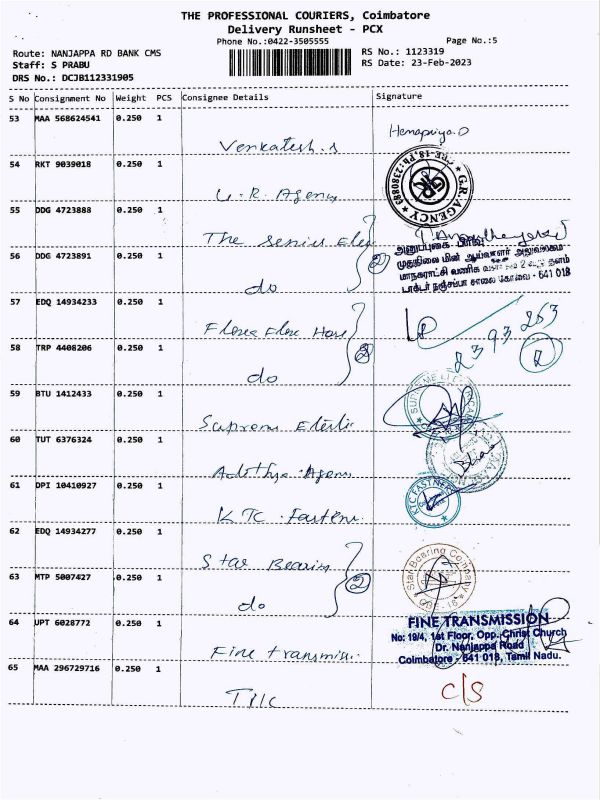 THE PROFESSIONAL COURIERS, Coimbatore
Delivery Runsheet - PCX
Phone No.:0422-3505555
Page No.:5
Route: NANJAPPA RD BANK CMS
RS No.: 1123319
Staff: S PRABU
RS Date: 23-Feb-2023
DRS No.: DCJB112331905
S No Consignment No Weight PCS Consignee Details Signature
53 MAA 568624541 0.250 1
Venkatesh.s
Hemapriya.D
54 RKT 9039018 0.250 1
G.R. Agency
G.R.AGENCY
CBE-18, Ph:2380889
55 DDG 4723888 0.250 1
The Senior Elec
அனுப்புகை பிரிவு
56 DDG 4723891 0.250 1
do
2
முதுநிலை மின் ஆய்வாளர் அலுவலகம்
மாநகராட்சி வணிக 2 தளம்
டாக்டர் நஞ்சப்பா சாலை கோவை - 641 018
57 EDQ 14934233 0.250 1
239 3 263
58 TRP 4408206 0.250 1
do
2
2
59 BTU 1412433 0.250 1
60 TUT 6376324 0.250 1
Adithya Agens
61 DPI 10410927 0.250 1
KTC Fastens
KTC FASTNERS
62 EDQ 14934277 0.250 1
Star Bearing
63 MTP 5007427 0.250 1
do
2
Star Bearing Company
64 UPT 6028772 0.250 1
Fine transmissi
FINE TRANSMISSION
No: 19/4, 1st Floor, Opp. Christ Church
Dr. Nanjappa Road
Coimbatore - 641 018, Tamil Nadu.
65 MAA 296729716 0.250 1
C/S